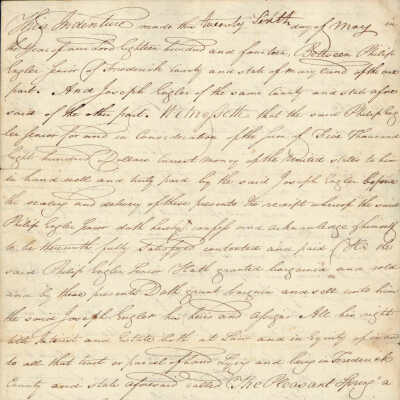 This Indenture made this twenty Sixth day of May in
the Year of our Lord Eighteen hundred and fourteen, Between Philip
Eagler Senior of Frederick County and state of Maryland of the one
part. And Joseph Eagler of the same County and state afore
said of the other part. Witnesseth that the said Philip Eag
ler Senior for and in Consideration of the Sum of Five Thousand
Eight hundred Dollars current money of the United States to him
in hand well and truly paid by the said Joseph Eagler before
the sealing and delivery of these presents the receipt whereof the said
Philip Eagler Senior doth hereby confess and acknowledge himself
to be therewith fully Satisfyed contented and paid He the
said Philip Eagler Senior Hath granted bargained and sold
and by these presents Doth grant bargain and sell unto him
the said Joseph Eagler his heirs and assigns All his right
title Interest and Estate both at Law and in Equity of in and
to all that tract or parcel of land lying and being in Frederick
County and state aforesaid called "The Pleasant Spring" a